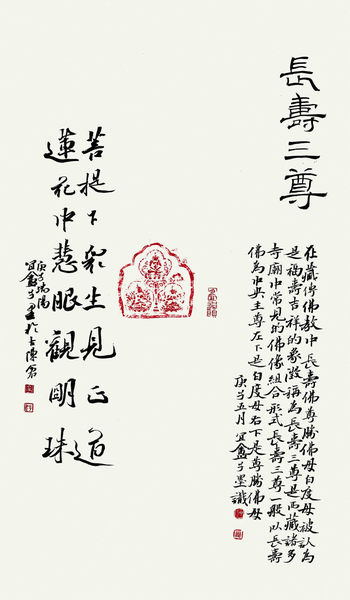 長壽三尊
在藏傳佛教中長壽佛尊勝佛母白度母被認為
是福壽吉祥的象徵稱為長壽三尊是西藏諸多
寺廟中常見的佛像組合形式長壽三尊一般以長壽
佛為中央主尊左下是白度母右下是尊勝佛母
庚子五月宜鑫墨識
菩提下眾生見正道
蓮花中慧眼觀明珠
庚子端陽